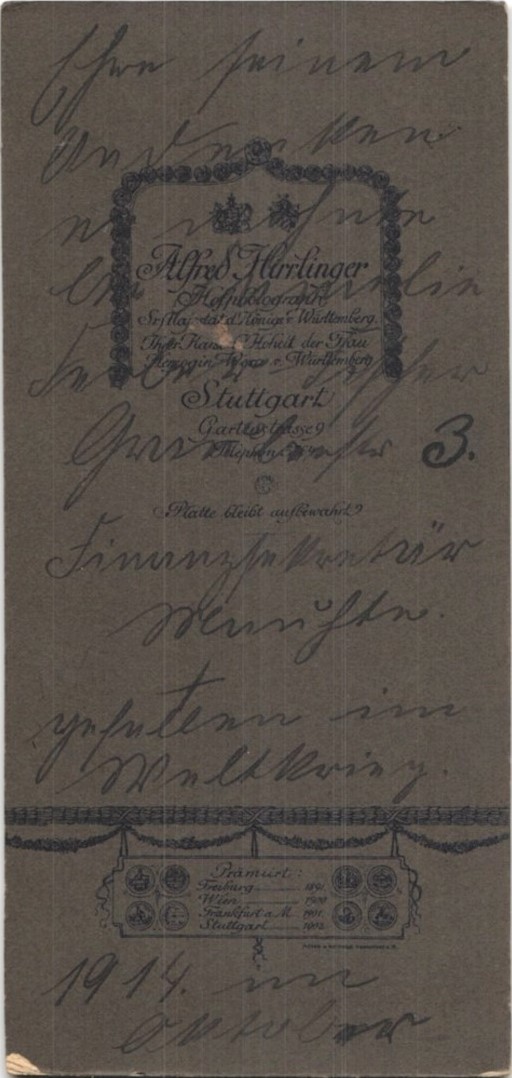 Ehre seinem
Andenken
er wohnte
bei Familie
Alfred Hirrlinger
Hofphotograph
Sr. Majestät d. Königs v. Württemberg
Ihrer Kais. Hoheit der Frau
Herzogin Wera v. Württemberg
Stuttgart
Gartenstrasse 9
Telephon
3.
Platte bleibt aufbewahrt
Finanzsekretär
gefallen im
Weltkrieg.
Prämiirt:
Freiburg 1891
Wien 1900
Frankfurt a. M. 1901
Stuttgart 1902
1914. im
Oktober